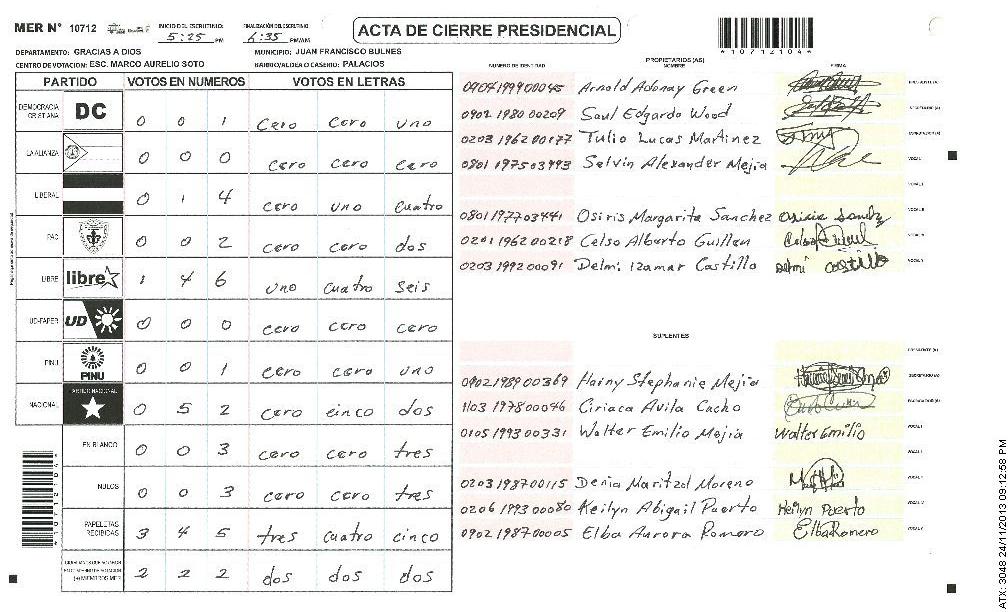 MER N° 10712 INICIO DEL ESCRUTINIO: 5:25 PM FINALIZACIÓN DEL ESCRUTINIO: 6:35 PM/AM
ACTA DE CIERRE PRESIDENCIAL
*10712104*
DEPARTAMENTO: GRACIAS A DIOS MUNICIPIO: JUAN FRANCISCO BULNES
CENTRO DE VOTACION: ESC. MARCO AURELIO SOTO BARRIO/ALDEA O CASERIO: PALACIOS
PARTIDO VOTOS EN NUMEROS VOTOS EN LETRAS
DEMOCRACIA CRISTIANA DC 0 0 1 cero cero uno
LA ALIANZA 0 0 0 cero cero cero
LIBERAL 0 1 4 cero uno cuatro
PAC 0 0 2 cero cero dos
LIBRE libre 1 4 6 uno cuatro seis
UD-FAPER UD 0 0 0 cero cero cero
PINU PINU 0 0 1 cero cero uno
NACIONAL PARTIDO NACIONAL 0 5 2 cero cinco dos
EN BLANCO 0 0 3 cero cero tres
NULOS 0 0 3 cero cero tres
PAPELETAS RECIBIDAS 3 4 5 tres cuatro cinco
(+) MIEMTROS MER 2 2 2 dos dos dos
*10712104*
PROPIETARIOS (AS)
NUMERO DE IDENTIDAD NOMBRE FIRMA
0904199900045 Arnold Adonay Green PRESIDENTE (A)
0902 1980 00209 Saul Edgardo Wood SECRETARIO (A)
0203 1962 00177 Tulio Lucas Martinez ESCRUTADOR (A)
0801 197503993 Selvin Alexander Mejia VOCAL I
VOCAL II
0801 197703441 Osiris Margarita Sanchez Osiris Sandz VOCAL III
0201 1962 00218 Celso Alberto Guillen VOCAL IV
0203 1992 00091 Delmi Izamar Castillo Delmi Castillo VOCAL V
SUPLENTES
PRESIDENTE (A)
0902 1989 00369 Hainy Stephanie Mejia SECRETARIO (A)
1103 1978 00046 Ciriaca Avila Cacho ESCRUTADOR (A)
0105 1993 00331 Walter Emilio Mejia Walter Emilio VOCAL I
VOCAL II
0203 1987 00115 Denia Maritzol Moreno
0206 1993 00080 Keilyn Abigail Puerto Keilyn Puerto
0902 1987 00005 Elba Aurora Romero Elba Romero VOCAL V
ATX: 3048 24/11/2013 09:12:58 PM